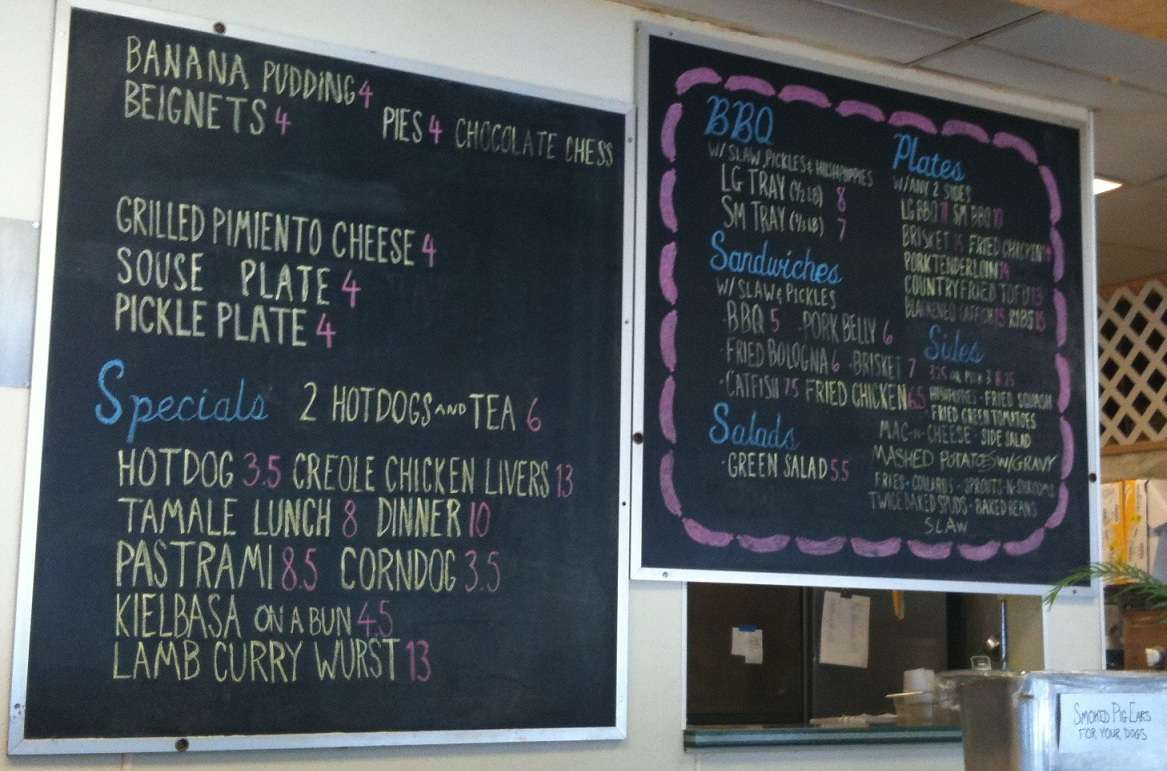 BANANA PUDDING 4
BEIGNETS 4 PIES 4 CHOCOLATE CHESS
GRILLED PIMIENTO CHEESE 4
SOUSE PLATE 4
PICKLE PLATE 4
Specials 2 HOTDOGS AND TEA 6
HOTDOG 3.5 CREOLE CHICKEN LIVERS 13
TAMALE LUNCH 8 DINNER 10
PASTRAMI 8.5 CORNDOG 3.5
KIELBASA ON A BUN 4.5
LAMB CURRY WURST 13
BBQ
W/ SLAW, PICKLES & HUSHPUPPIES
LG TRAY (1/2 LB) 8
SM TRAY (1/3 LB) 7
Sandwiches
W/ SLAW & PICKLES
·BBQ 5 ·PORK BELLY 6
·FRIED BOLOGNA 6 ·BRISKET 7
·CATFISH 7.5 FRIED CHICKEN 6.5
Salads
·GREEN SALAD 5.5
Plates
W/ANY 2 SIDES
LG BBQ 11 SM BBQ 10
BRISKET 15 FRIED CHICKEN
PORK TENDERLOIN 14
COUNTRY FRIED TOFU 13
BLACKENED CATFISH 15 RIBS 15
Sides
3.25 OR PICK 3 8.25
HUSHPUPPIES · FRIED SQUASH
· FRIED GREEN TOMATOES
MAC-N-CHEESE · SIDE SALAD
MASHED POTATOES W/GRAVY
FRIES · COLLARDS · SPROUTS-N-SHROOMS
TWICE BAKED SPUDS · BAKED BEANS
SLAW
SMOKED PIG EARS
FOR YOUR DOGS